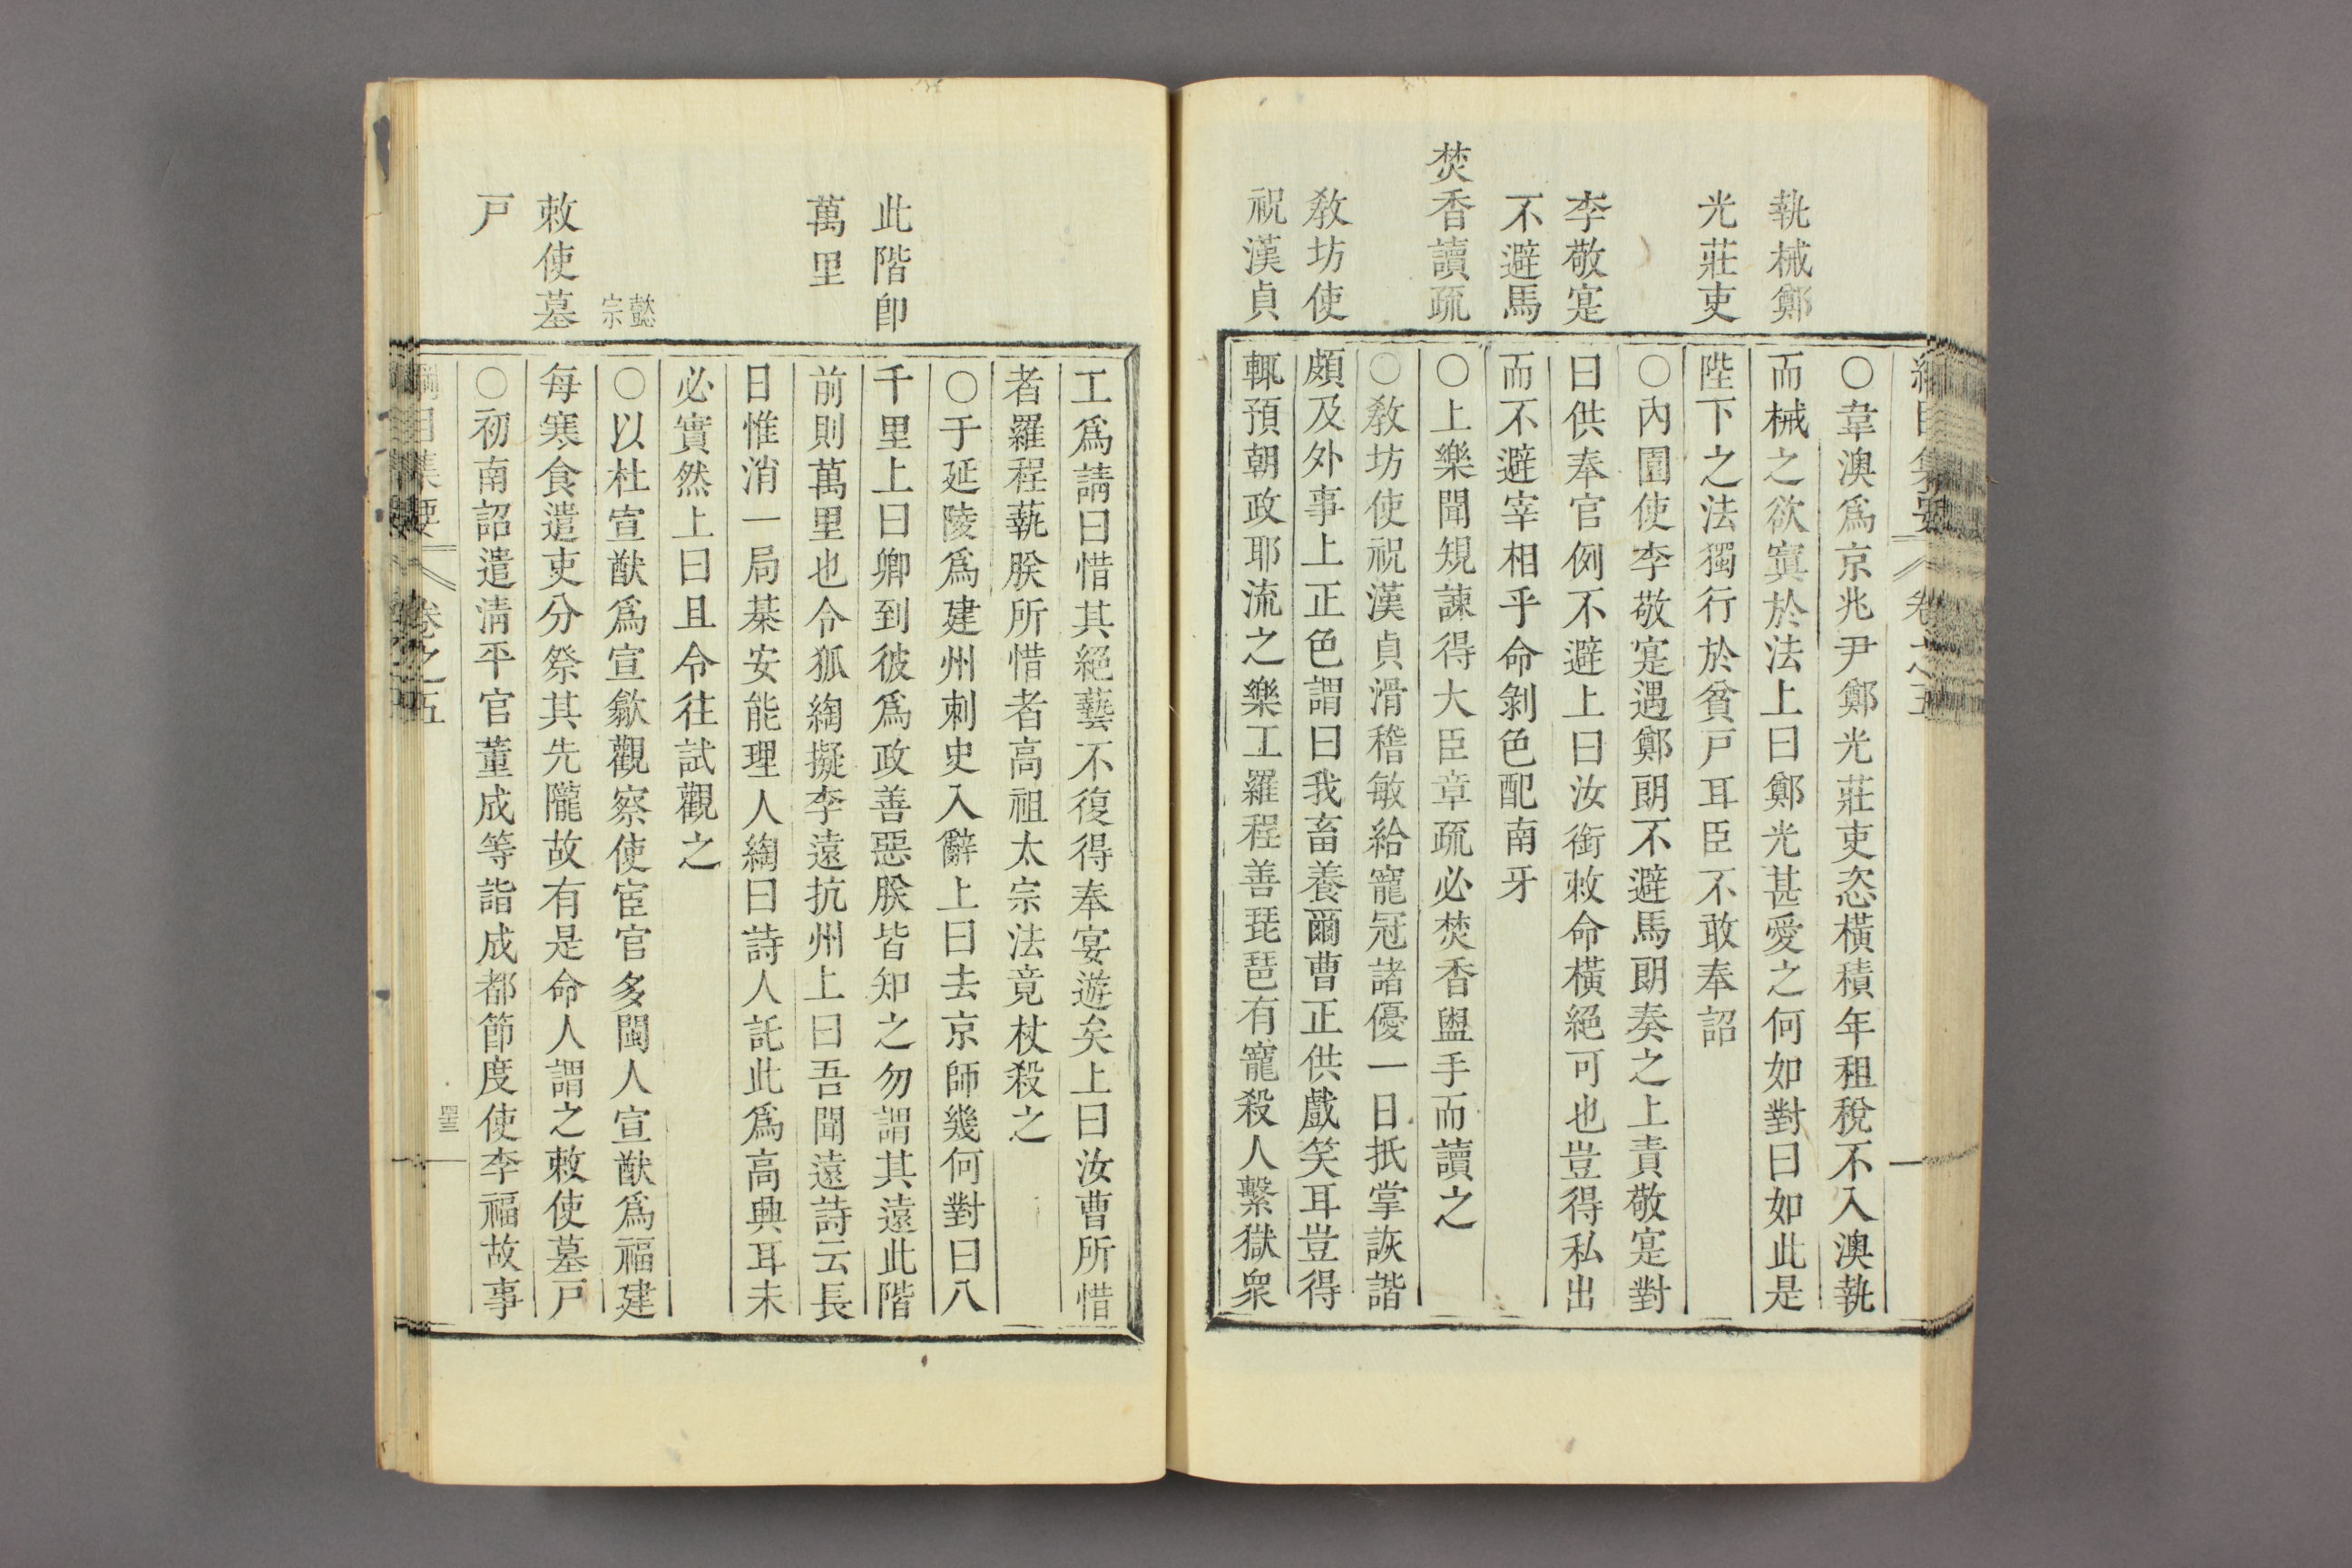 執械鄭
光莊吏
李敬寔
不避馬
焚香讀疏
敎坊使
祝漢貞
綱目集要 卷之五
○韋澳爲京兆尹鄭光莊吏恣橫積年租稅不入澳執
而械之欲寘於法上曰鄭光甚愛之何如對曰如此是
陛下之法獨行於貧戸耳臣不敢奉詔
○內園使李敬寔遇鄭朗不避馬朗奏之上責敬寔對
曰供奉官例不避上曰汝銜敕命橫絕可也豈得私出
而不避宰相乎命剝色配南牙
○上樂聞規諫得大臣章疏必焚香盥手而讀之
○敎坊使祝漢貞滑稽敏給寵冠諸優一日抵掌詼諧
頗及外事上正色謂曰我畜養爾曹正供戲笑耳豈得
輒預朝政耶流之樂工羅程善琵琶有寵殺人繫獄衆
此階卽
萬里
懿宗
敕使墓
戸
工爲請曰惜其絕藝不復得奉宴遊矣上曰汝曹所惜
者羅程藝朕所惜者高祖太宗法竟杖殺之
○于延陵爲建州刺史入辭上曰去京師幾何對曰八
千里上曰卿到彼爲政善惡朕皆知之勿謂其遠此階
前則萬里也令狐綯擬李遠抗州上曰吾聞遠詩云長
日惟消一局棊安能理人綯曰詩人託此爲高興耳未
必實然上曰且令往試觀之
○以杜宣猷爲宣歙觀察使宦官多閩人宣猷爲福建
每寒食遣吏分祭其先隴故有是命人謂之敕使墓戸
○初南詔遣淸平官董成等詣成都節度使李福故事
綱目集要 卷之五 四三